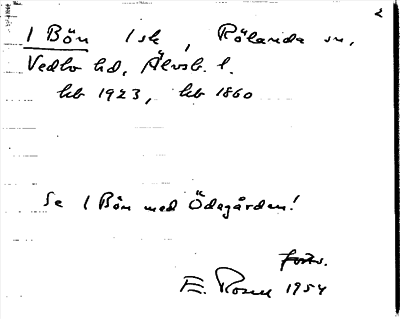 2
1 Bön 1 sk, Rölanda sn,
Vedbo hd, Älvsb. l.
kb 1923, kb 1860
Se 1 Bön med Ödegården!
forts.
E. Rosell 1954